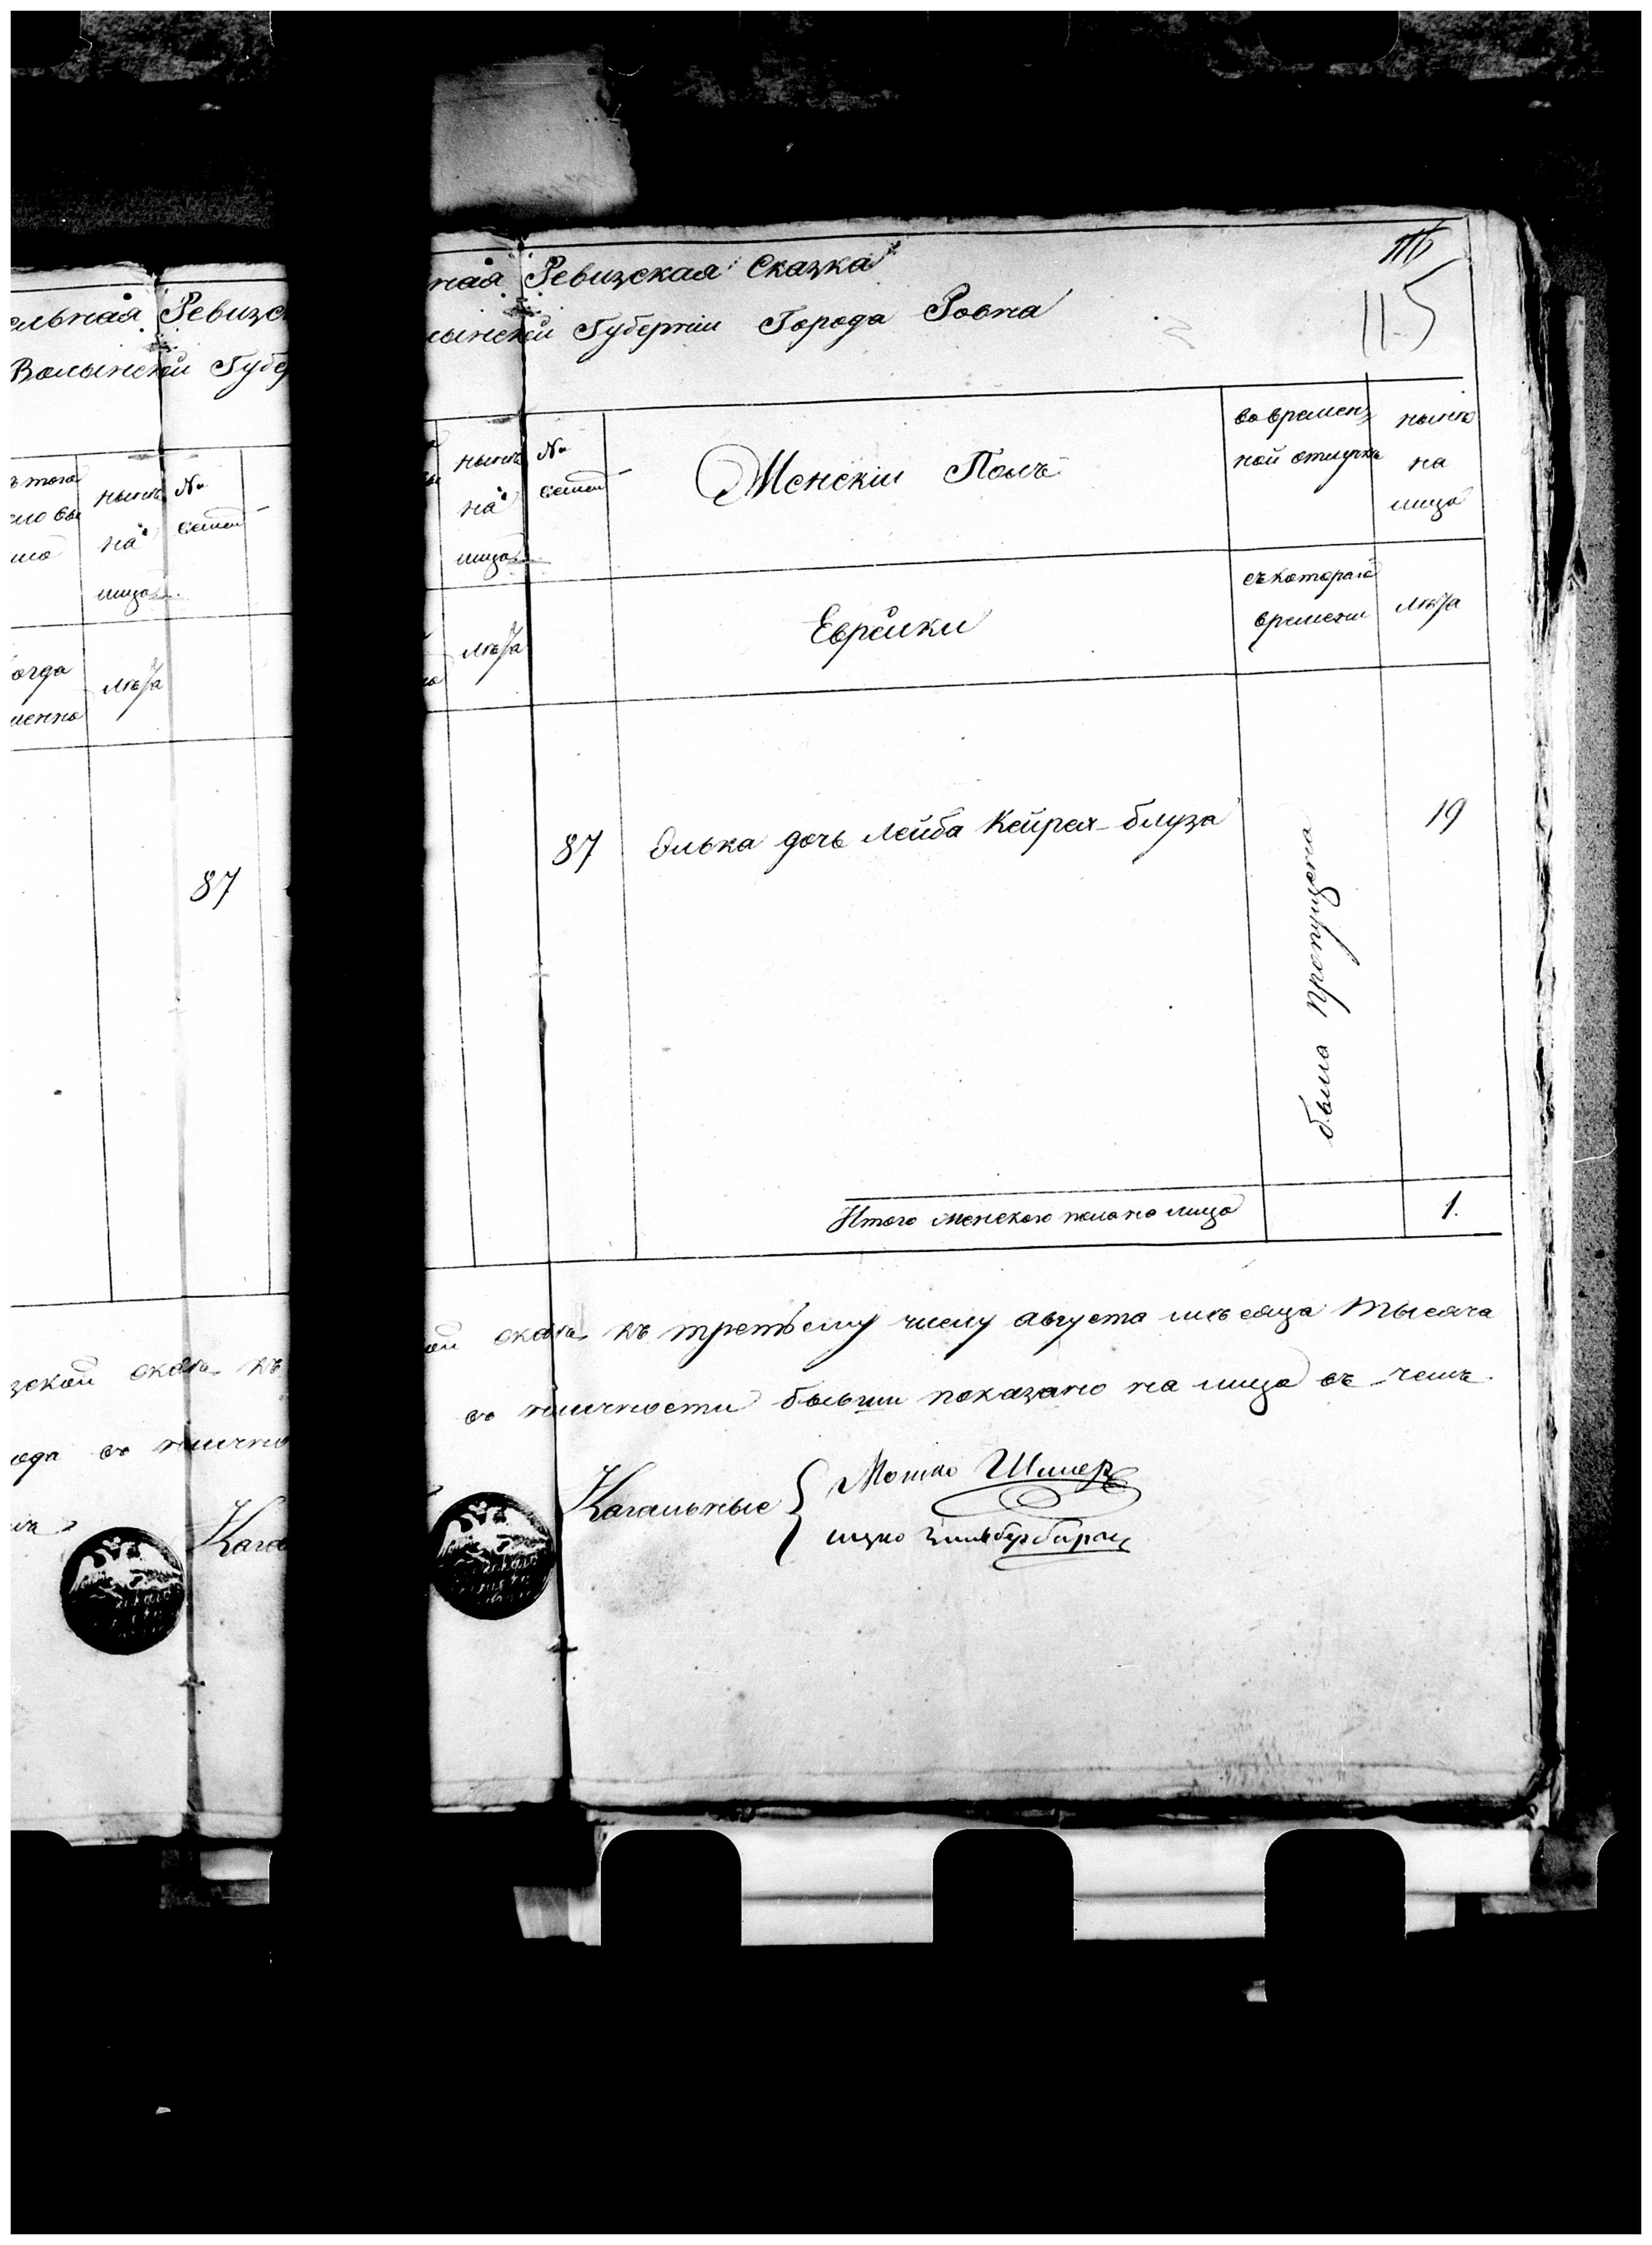 льная Ревизс
Волынскои Губер
ъ того
нынѣ
№
ло вы
на
семей
лицо
огда
лѣта
менно
87
зской сказкѣ къ
года въ налично
Кага
116
115
ная Ревизская Сказка
лынской Губерніи Города Ровна
нынѣ
на
лицо
№
семей
Женскій Полъ
во времен
ной отлучкѣ
ныне
на
лицо
лѣта
Еврейки
съ котораго
времени
лѣта
87
Элька дочь Лейба Кейрех-блуза
была пропущена
19
Итого женского пола на лицо
1.
ой сказкѣ къ третьему числу августа мѣсяца тысяча
въ наличности бывши показано на лицо въ чемъ
Кагальные
Мошко Шмиер
ицко Зильберберг